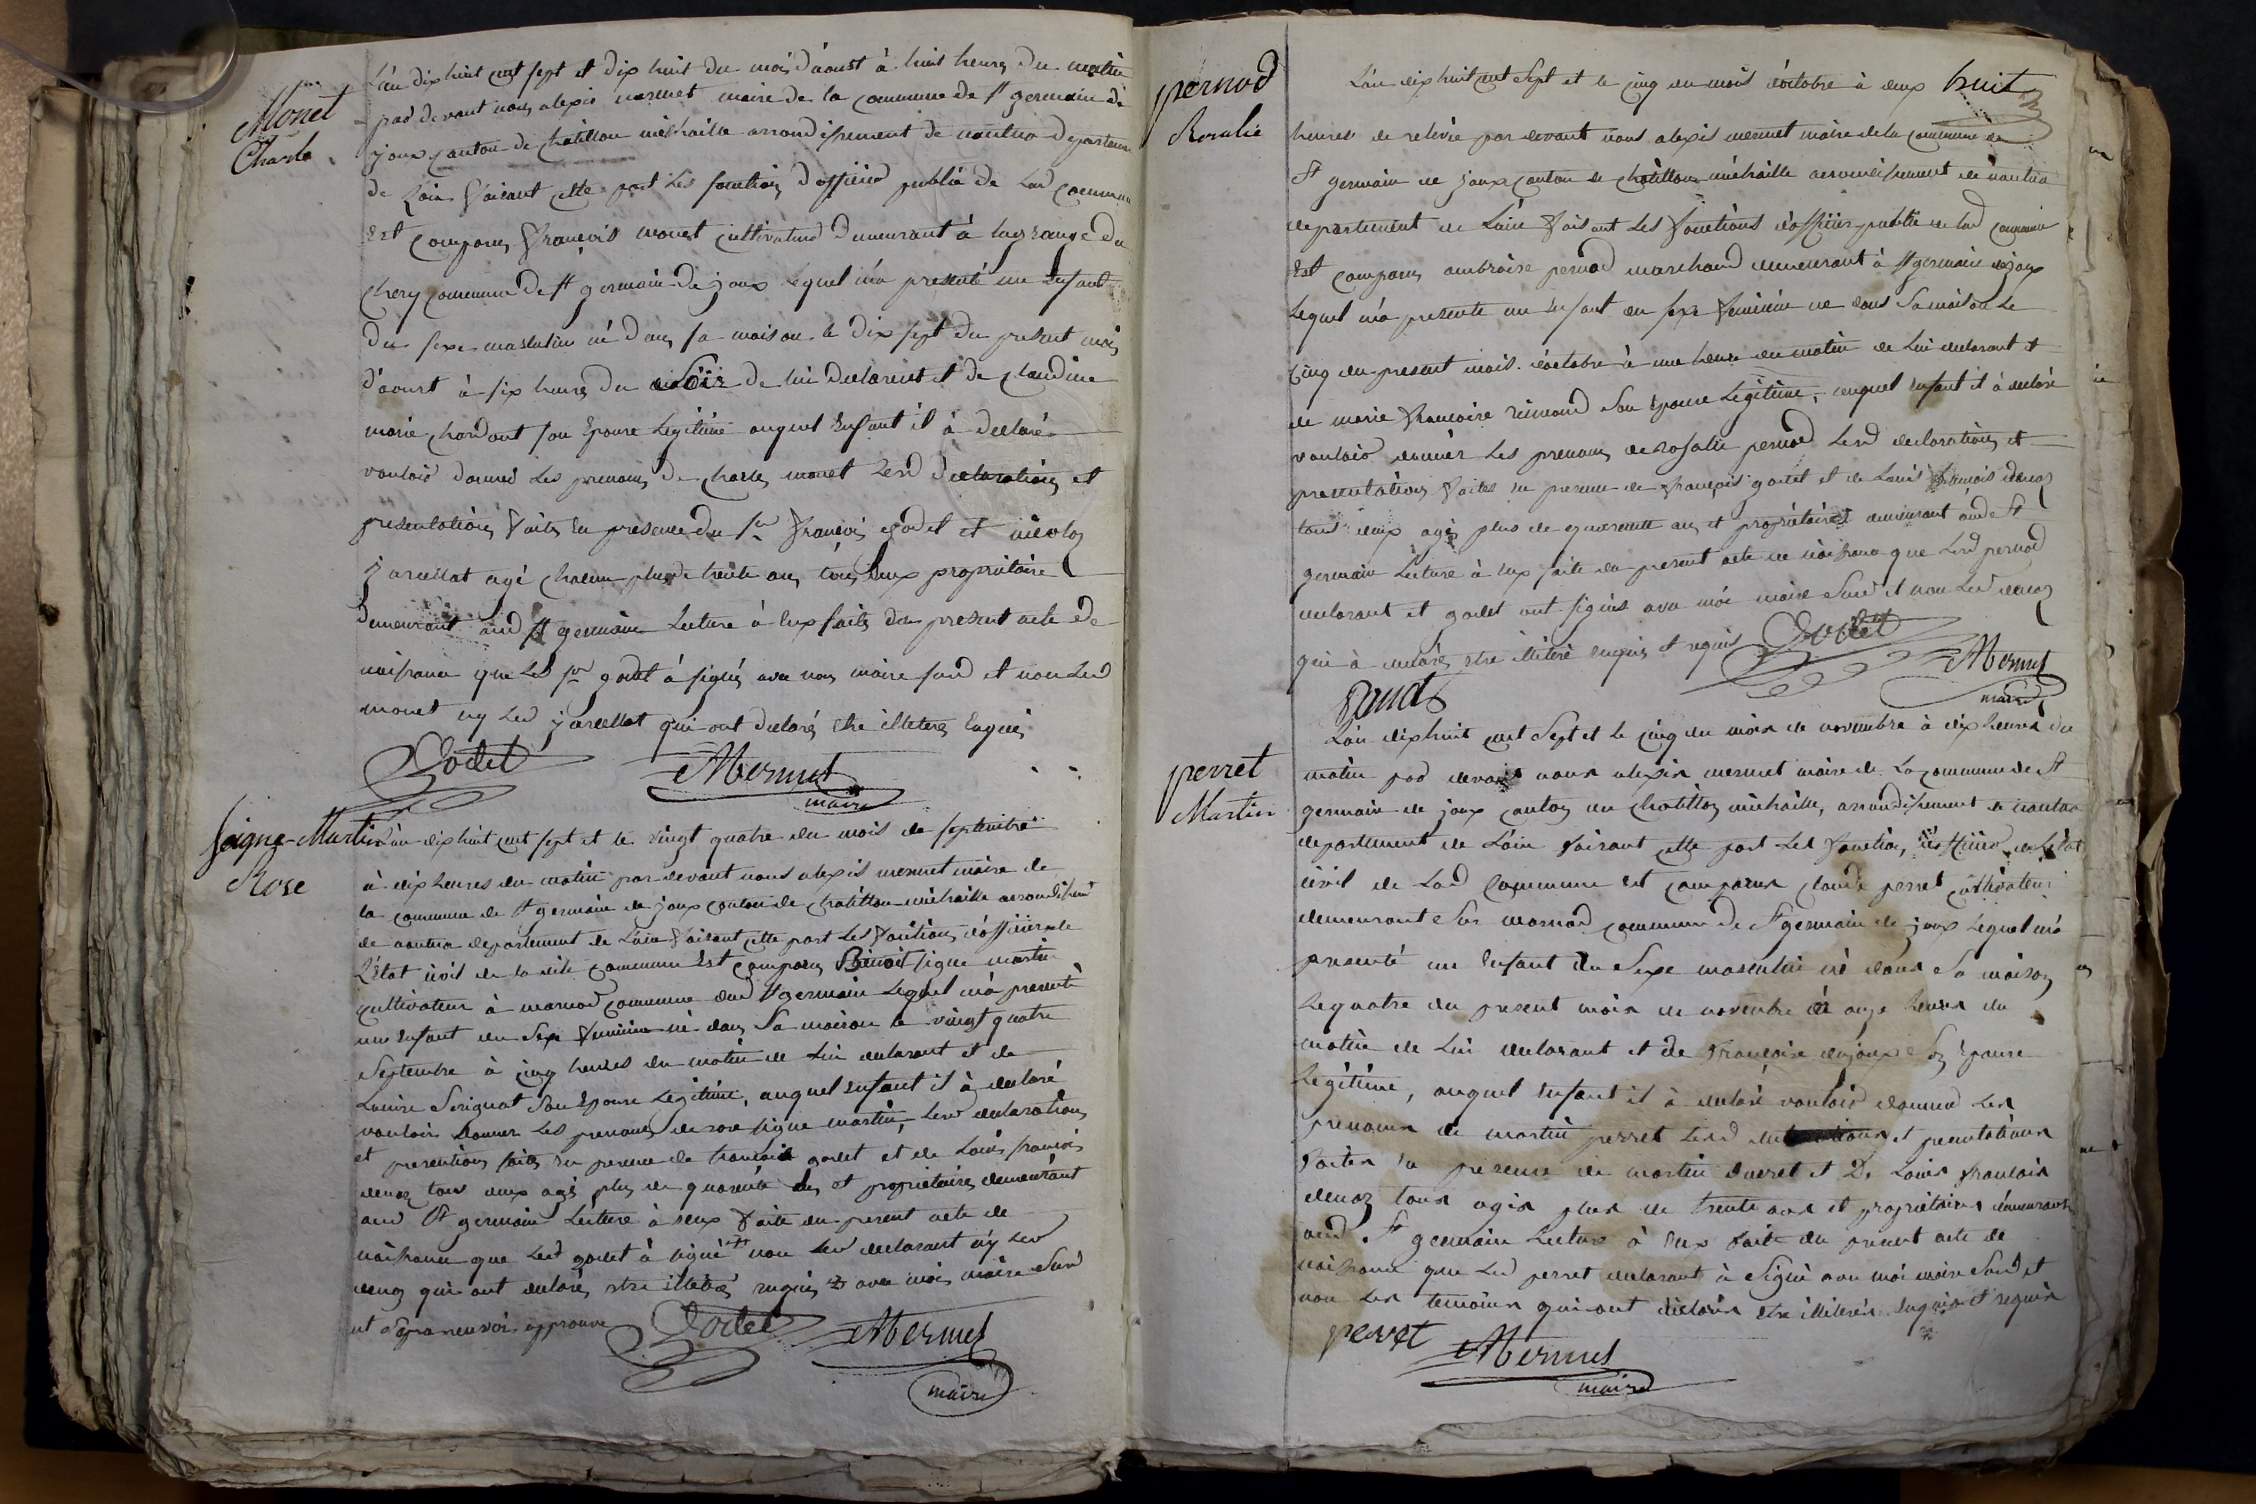 Monet
Charle
L'an dix huit cent sept et dix huit du mois d'aoust à huit heures du matin
par devant nous alexis mermet maire de la commune de st germain de
joux canton de chatillon michaille arrondissement de nantua departem
de Lain faisant cette part les fonctions d'officier public de lad commune
Est comparu François monet cultivateur demeurant à lagrange du
chery commune de st germain de joux lequel m'a presenté un Enfant
du sexe masculin né dans sa maison le dix sept du present mois
d'aoust à six heures du soir de lui declarent et de claudine
marie hardout son Epouse Legitime auquel Enfant il à declaré
vouloir donner les prenoms de charles monet lesd declarations et
presentations faites en presence du sr François godet et nicolas
jarcellat agé chacun plus de trente ans tous deux proprietaire
demeurant aud st germain Lecture à eux faite du present acte de
naissance que led sr godet à signé avec nous maire susd et non led
monet ny led jarcellat qui ont declarés etre illeteres Enquis
Godet AMermet
maire
Seigne-Martin
Rose
L'an dix huit cent sept et le vingt quatre du mois de septembre
à dix heures du matin par devant nous alexis mermet maire de
la commune de st germain de joux canton de chatillon michaille arrondissement
de nantua departement de Lain faisant cette part les fonctions d'officier de
L'état civil de la dite commune Est comparu Benoit signe martin
cultivateur à marnod commune dud st germain Lequel m'à presenté
un Enfant du sexe feminin né dans sa maison le vingt quatre
septembre à cinq heures du matin de Lui declarant et de
Louise Serignat son Epouse Légitime, auquel enfant il à declaré
vouloir donner les prenoms de rose signe martin, lesd declarations
et presentions faites en presence de francois godet et de Louis francois
denoz tous deux agés plus de quarente ans et proprietaires demeurant
aud st germain Lecture à eux faite du present acte de
naissance que led godet à signé non led declarant n'y led
denoz qui ont declarés etre illeteres enquis avec moi maire susd
et renvoi approuvé
Godet AMermet
maire
pernod
Rosalie
huit
L'an dix huit cent sept et le cinq du mois d'octobre à deux
heures de relevée par devant nous alexis mermet maire de la commune de
st germain de joux canton de châtillon michaille arrondissement de nantua
departement de Lain faisant les fonctions d'officier public de lad commune
Est comparu ambroise pernod marchand demeurant à st germain de joux
Lequel m'à presenté un enfant du sexe feminin né dans sa maison le
cinq du present mois d'octobre à une heure du matin de Lui declarant et
de marie francoise son Epouse Légitime, auquel enfant il à declaré
vouloir donner les prenoms de rosalie pernod lesd declarations et
presentations faites en presence de françois godet et de Louis francois denoz
tous deux agés plus de quarente ans et propriétaires demeurant aud st
germain Lecture à eux faite du present acte de naissance que led pernod
declarant et godet ont signés avec moi maire susd et non led denoz
qui à declaré etre illiteré enquis et requis Godet
AMermet
maire
perret
Martin
L'an dix huit cent sept et le cinq du mois de novembre à dix heures du
matin par devant nous alexis mermet maire de la commune de st
germain de joux canton de chatillon michaille, arrondissement de nantua
departement de Lain faisant cette part les fonctions d'officier de L'etat
civil de lad commune est comparu claude perret cultivateur
demeurant sur marnod commune de st germain de joux Lequel m'à
presenté un Enfant du sexe masculin né dans sa maison
Le quatre du present mois de novembre à onze heures du
matin de Lui declarant et de francoise dujoux son Epouse
Légitime, auquel enfant il à declaré vouloir donner les
prenoms de martin perret lesd declarations et presentations
faites en presence de martin ducret et De Louis francois
denoz tous agés plus de trente ans et propriétaires demeurant
aud st germain Lecture à eux faite du present acte de
naissance que led perret declarant à signé avec moi maire susd et
non les temoins qui ont declarés etre illiterés enquis et requis
perret AMermet
maire